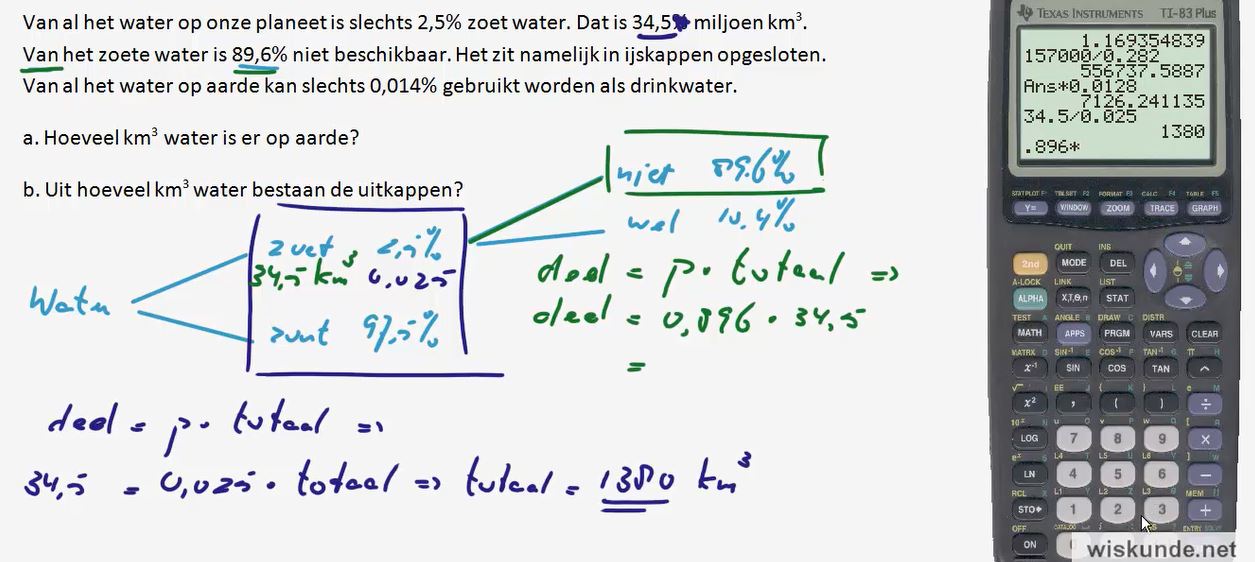 Van al het water op onze planeet is slechts 2,5% zoet water. Dat is 34,5 miljoen km³.
Van het zoete water is 89,6% niet beschikbaar. Het zit namelijk in ijskappen opgesloten.
Van al het water op aarde kan slechts 0,014% gebruikt worden als drinkwater.
a. Hoeveel km³ water is er op aarde?
b. Uit hoeveel km³ water bestaan de uitkappen?
niet 89.6%
wel 10.4%
zoet 2,5%
34,5 km³ 0,025
Water
zout 97,5%
deel = p · totaal =>
deel = 0,896 · 34,5
=
deel = p · totaal =>
34,5 = 0,025 · totaal => totaal = 1380 km³
TEXAS INSTRUMENTS TI-83 Plus
1.169354839
157000/0.282
556737.5887
Ans*0.0128
7126.241135
34.5/0.025
1380
.896*
STAT PLOT F1 TBLSET F2 FORMAT F3 CALC F4 TABLE F5
Y= WINDOW ZOOM TRACE GRAPH
QUIT INS
2nd MODE DEL
A-LOCK LINK LIST
ALPHA X,T,θ,n STAT
TEST A ANGLE B DRAW C DISTR
MATH APPS PRGM VARS CLEAR
MATRX D SIN⁻¹ E COS⁻¹ F TAN⁻¹ G π H
x⁻¹ SIN COS TAN ^
x² , ( ) ÷
LOG 7 8 9 ×
LN 4 5 6 −
RCL X L1 Y L2 Z L3 θ MEM
STO▸ 1 2 3 +
OFF CATALOG
ON
wiskunde.net